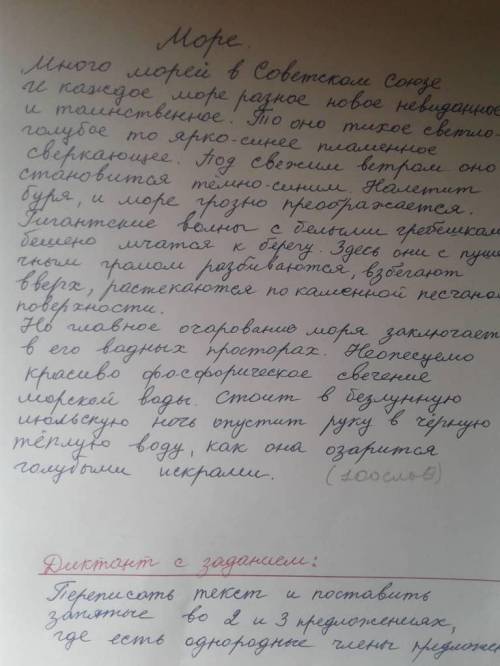 Море.
Много морей в Советском Союзе
И каждое море разное новое невиданное
и таинственное. То оно тихое светло-
голубое то ярко-синее пламенное
сверкающее. Под свежим ветром оно
становится тёмно-синим. Налетит
буря, и море грозно преображается.
Гигантские волны с белыми гребешкам
бешено мчатся к берегу. Здесь они с пуше
чным громом разбиваются, взбегают
вверх, растекаются по каменной песчано
поверхности.
Но главное очарование моря заключает
в его водных просторах. Неописуемо
красиво фосфорическое свечение
морской воды. Стоит в безлунную
июльскую ночь опустит руку в чёрную
тёплую воду, как она озарится
голубыми искрами. (100слов)
Диктант с заданием:
Переписать текст и поставить
запятые во 2 и 3 предложениях,
где есть однородные члены предложе